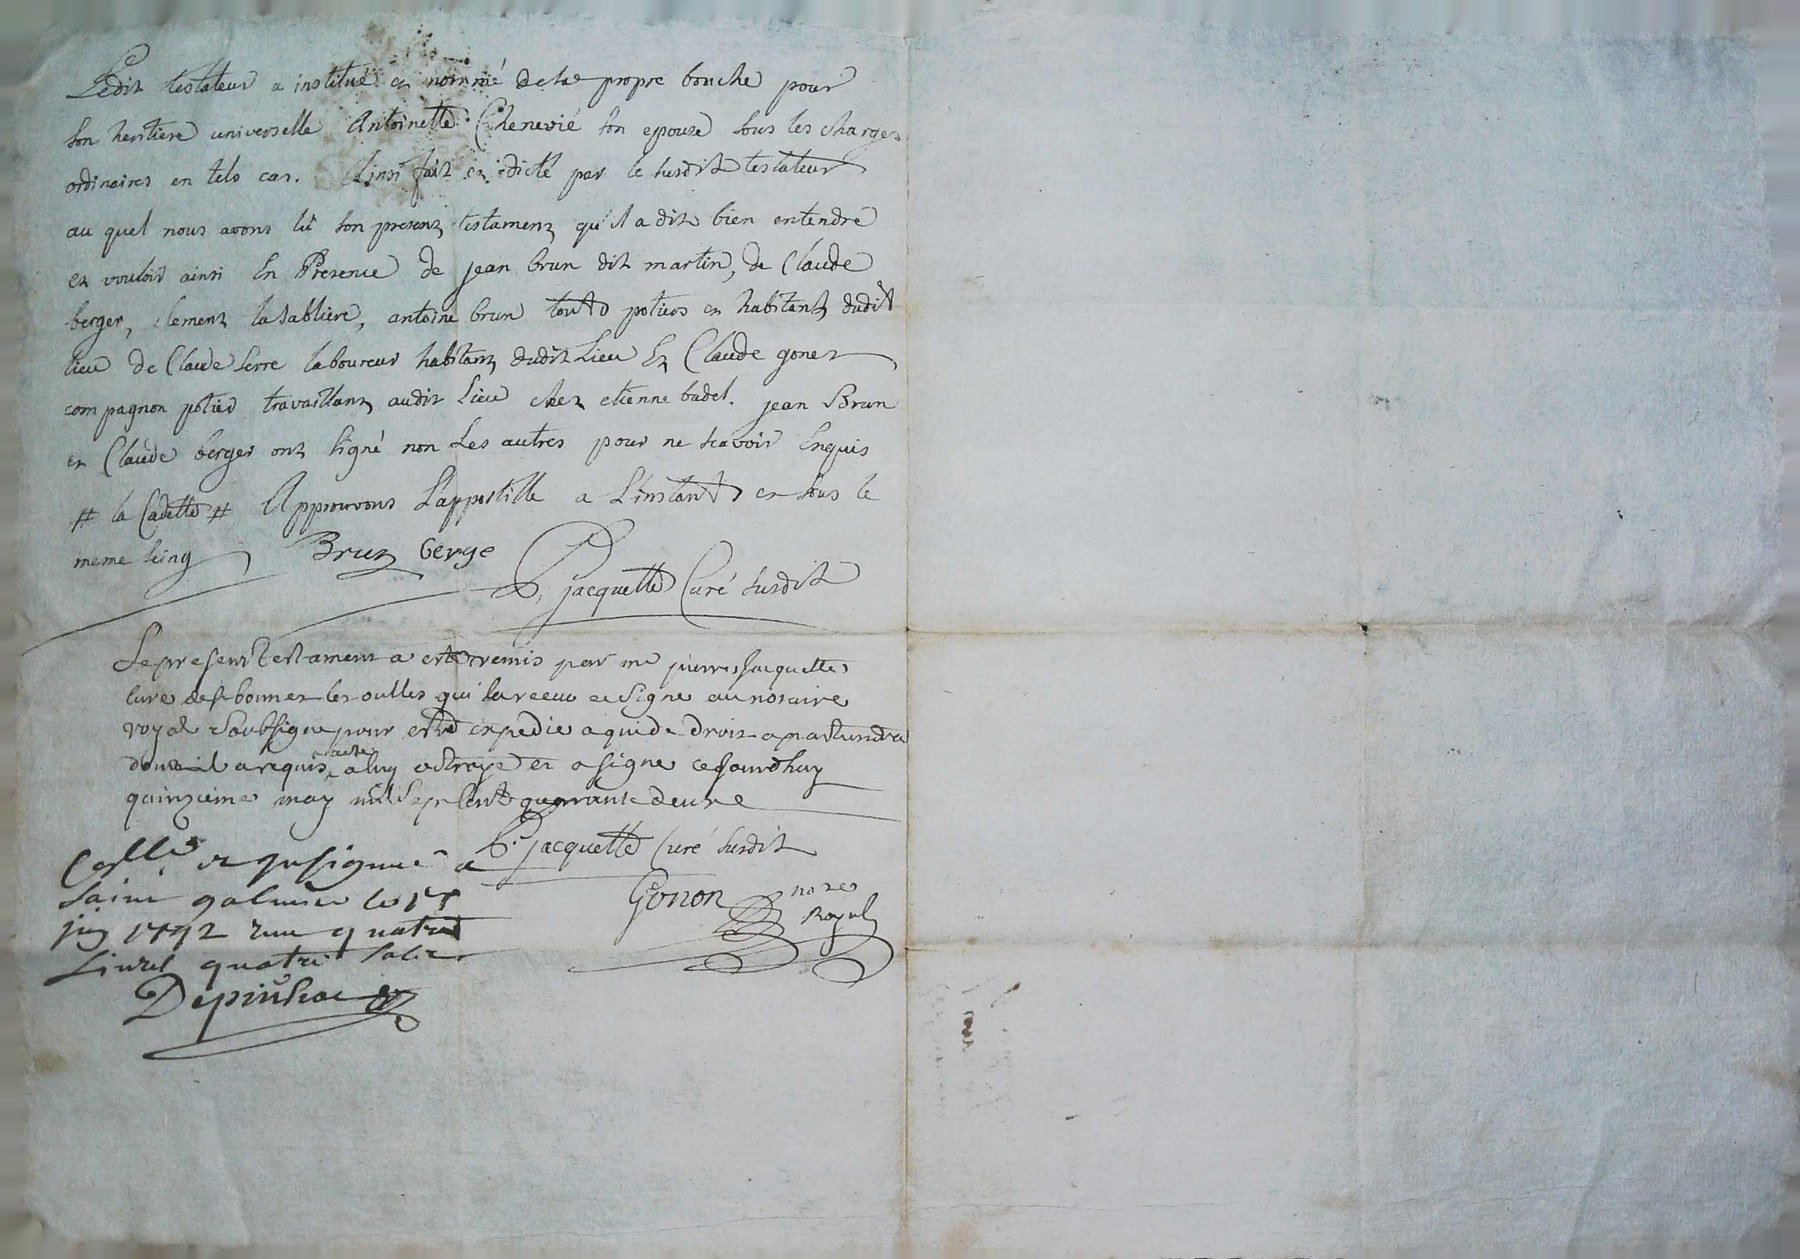 Ledit testateur a institué et nommé de sa propre bouche pour
son heritiere universelle Antoinette Chenevié son epouze sous les charges
ordinaires en tels cas. Ainsi fait et dicté par le susdit testateur
au quel nous avons lû son present testament qu'il a dit bien entendre
et vouloir ainsi En Présence de jean brun dit martin, de Claude
berger, clement lasabliere, antoine brun touts potiers et habitants dudit
lieu de Claude Serre laboureur habitant dudit Lieu Et Claude gonet
compagnon potier travaillant audit Lieu chez etienne badel. jean Brun
et Claude berger ont signé non Les autres pour ne scavoir Enquis
# la Cadette # Approuvons L'appostille a L'instant et sous le
meme seing Brun berge
P. jacquette Curé susdit
Le present testament a esté remis par me pierre Jacquette
cure de st bonnet les oulles qui la receu et signe au notaire
royal soubsigne pour estre expedie a qui de droit apartiendra
dont il a requis acte a luy octroye et a signe ce jourdhuy
quinzieme may mil sept cent quarante deux
P. jacquette Curé susdit
Collé et insignué a
saint galmier le 15
juin 1742 recu quatre
Livres quatre sols
Gonon nore
Royal